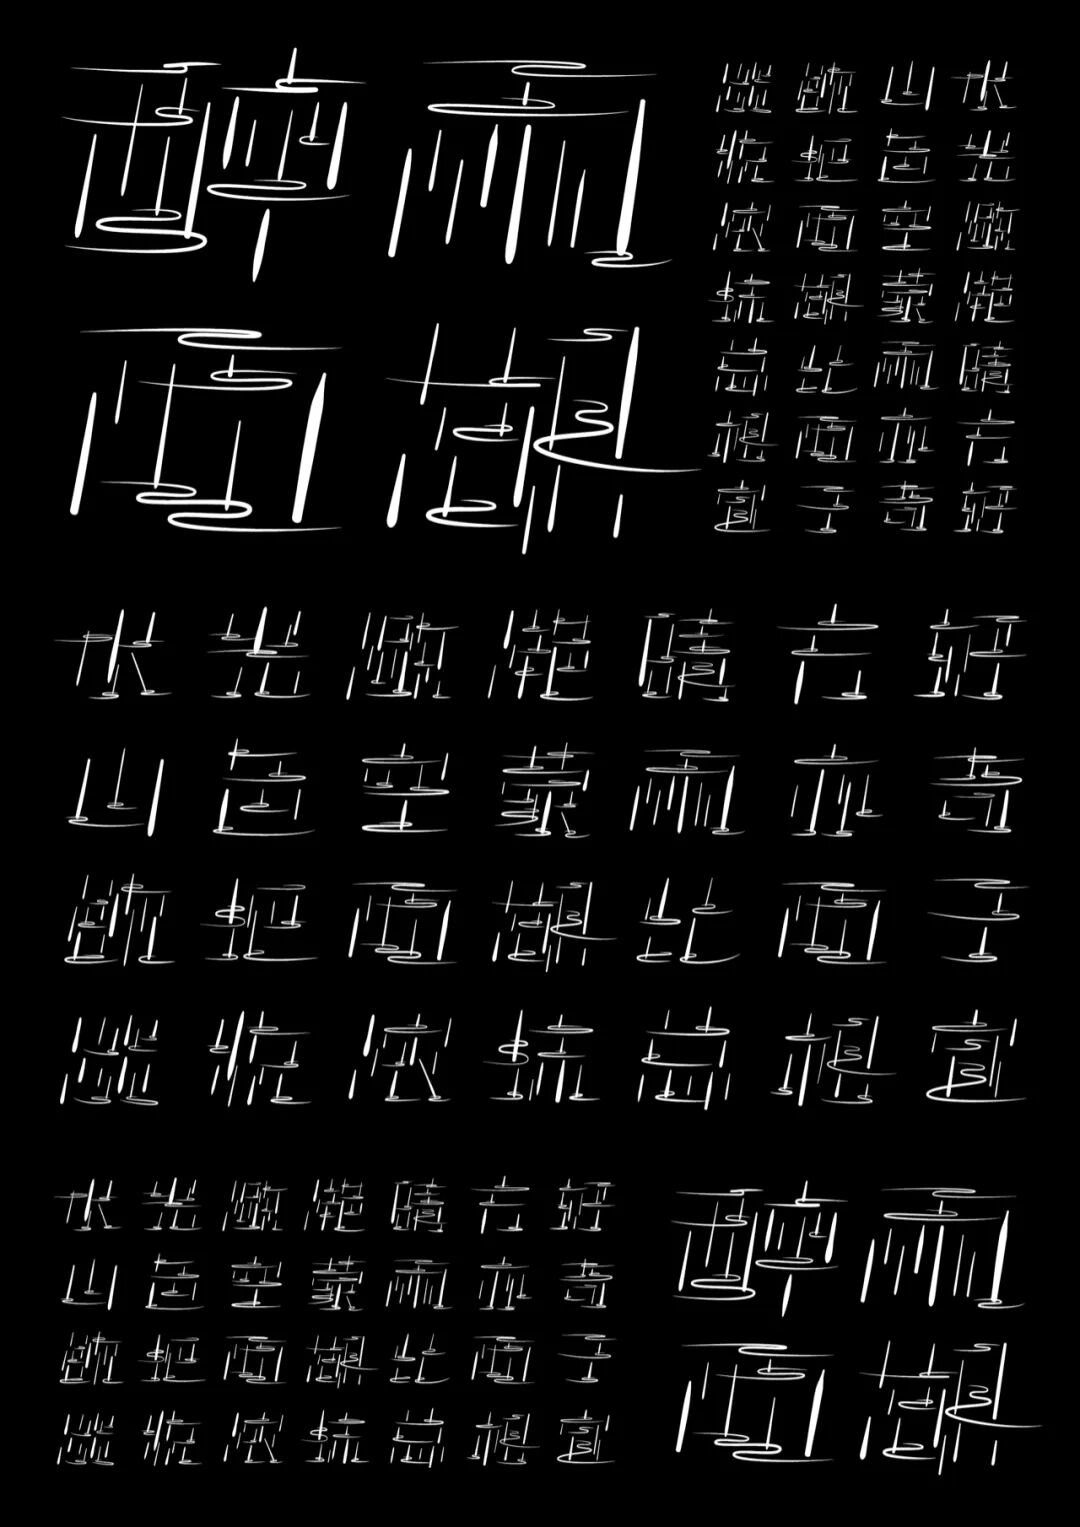 醉雨
西湖
水光潋滟晴方好
山色空蒙雨亦奇
欲把西湖比西子
淡妆浓抹总相宜
水光潋滟晴方好
山色空蒙雨亦奇
欲把西湖比西子
淡妆浓抹总相宜
水光潋滟晴方好
山色空蒙雨亦奇
欲把西湖比西子
淡妆浓抹总相宜
醉雨
西湖